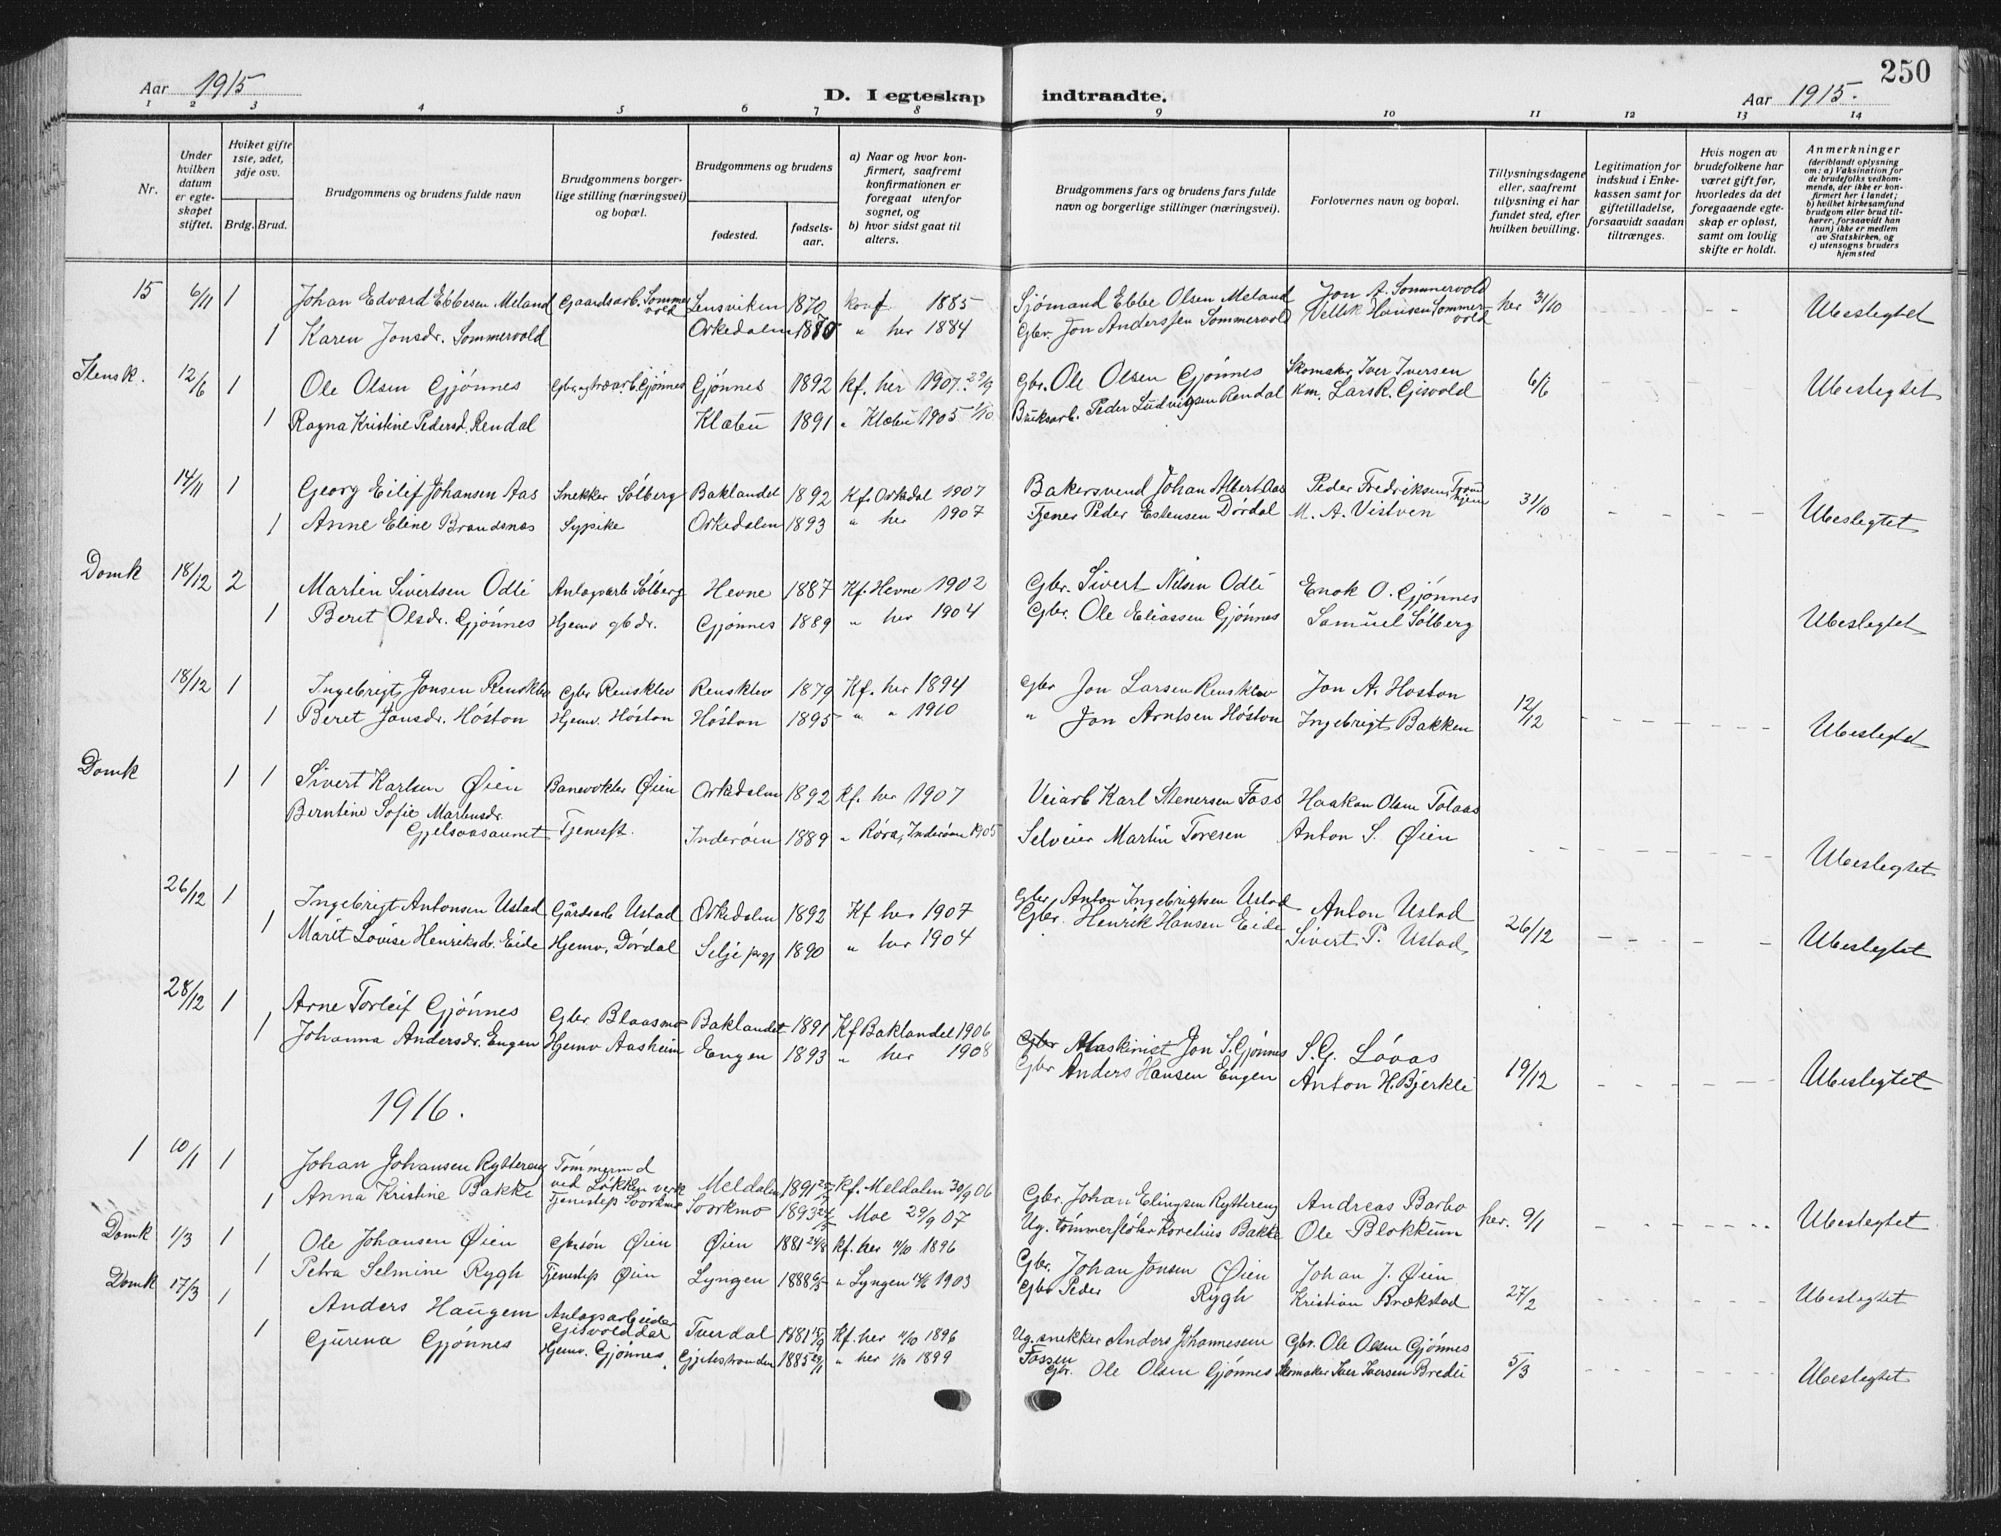 Aar 1915
D. Iegteskap indtraadte.
Aar 1915.
250
1 2 3 4 5 6 7 8 9 10 11 12 13 14
Nr.
Under hvilken datum er egteskapet stiftet.
Hviket gifte 1ste, 2det, 3dje osv.
Brdg. Brud.
Brudgommens og brudens fulde navn
Brudgommens borgerlige stilling (næringsvei) og bopæl.
Brudgommens og brudens
fødested.
fødselsaar.
a) Naar og hvor konfirmert, saafremt konfirmationen er foregaat utenfor sognet, og
b) hvor sidst gaat til alters.
Brudgommens fars og brudens fars fulde navn og borgerlige stillinger (næringsvei).
Forlovernes navn og bopæl.
Tillysningsdagene eller, saafremt tillysning ei har fundet sted, efter hvilken bevilling.
Legitimation for indskud i Enkekassen samt for giftetilladelse, forsaavidt saadan tiltrænges.
Hvis nogen av brudefolkene har været gift før, hvorledes da det foregaaende egteskap er opløst, samt om lovlig skifte er holdt.
Anmerkninger (deriblandt oplysning om: a) Vaksination for de brudefolks vedkommende, der ikke er konfirmert her i landet; b) hvilket kirkesamfund brudgom eller brud tilhører, forsaavidt han (hun) ikke er medlem av Statskirken, og c) utensogns bruders hjemsted
15 6/11 1 Johan Edvard Ebbesen Meland Gaardsarb. Sommervold Lensviken 1870 konf 1885 Sjömand Ebbe Olsen Meland Jon A. Sommervold her 31/10 Ubeslegtet
1 Karen Jonsdr. Sommervold Orkedalen 1870 " her 1884 Gbr. Jon Anderssen Sommervold Vellik Hansen Sommervold
Ilensk. 12/6 1 Ole Olsen Gjönnes Gbr. og træarb. Gjönnes Gjönnes 1892 kf. her 1907. 29/9 Gbr. Ole Olsen Gjönnes Skomaker Iver Iversen 6/6 Ubeslegtet
1 Ragna Kristine Pedersd. Rendal Klæbu 1891 " Klæbu 1905 1/10 Bruksarb. Peder Ludvigsen Rendal km. Lars K. Gisvold
14/11 1 Georg Eilif Johansen Aas Snekker Sólberg Baklandet 1892 Kf. Orkedal 1907 Bakersvend Johan Albert Aas Peder Fredriksen, Trondhjem 31/10 Ubeslegtet
1 Anne Eline Brandsnæs Sypike Orkedalen 1893 " her 1907 Tjener Peder Estensen Dórdal M. A. Vistven
Domk 18/12 2 Martin Sivertsen Odli Anlægsarb Sólberg Hevne 1887 Kf. Hevne 1902 Gbr. Sivert Nilsen Odli Enok O. Gjönnes Ubeslegtet
1 Beret Olsdr. Gjönnes Hjemv gb dr. Gjönnes 1889 " her 1904 Gbr. Ole Eliassen Gjönnes Samuel Sólberg
18/12 1 Ingebrigt Jonsen Rensklev Gbr Rensklev Rensklev 1879 Kf. her 1894 Gbr Jon Larsen Rensklev Jon A. Hoston 12/12 Ubeslegtet
1 Beret Jonsdr. Hóston Hjemv. Hóston Hóston 1895 " " 1910 " Jon Arntsen Hóston Ingebrigt Bakken
Domk 1 1 Sivert Karlsen Øien Banevokter Øien Orkedalen 1892 Kf. her 1907 Veiarb Karl Stenersen Foss Haakon Olsen Tolaas
Berntine Sofie Martinsdr. Gjelsaasaunet Tjenest. Inderöen 1889 " Röra, Inderöen 1905 Selveier Martin Toresen Anton S. Øien Ubeslegtet
26/12 1 Ingebrigt Antonsen Ustad Gårdsarb Ustad Orkedalen 1892 Kf her 1907 Gbr Anton Ingebrigtsen Ustad Anton Ustad 26/12 Ubeslegtet
1 Marit Lovise Henriksdr. Eide Hjemv, Dórdal Selje prgj 1890 " her 1904 Gbr. Henrik Hansen Eide Sivert P. Ustad,
28/12 1 Arne Torleif Gjönnes Gbr Blaasmo Baklandet 1891 Kf Baklandet 1906 Gbr Maskinist Jon S. Gjönnes S. G. Lövaas 19/12 Ubeslegtet
1 Johanna Andersdr. Engen Hjemv Aasheim Engen 1893 " her 1908 Gbr Anders Hansen Engen Anton H. Bjerkli
1916.
1 10/1 1 Johan Johansen Rytterang Tömmermd ved Lökken verk Meldalen 1891 Kf. Meldalen 30/9 06 Gbr. Johan Elingsen Rytterang Andreas Barbo her. 9/1 Ubeslegtet
1 Anna Kristine Bakke Tjenestep Svorkmo Svorkmo 1893 Moe 29/9 07 Ug. tömmerflöter Korelius Bakke Ole Blokkum
Domk 1/3 1 Ole Johansen Øien Gbrsön Øien Øien 1881 24/8 kf. her 11/10 1896 Gbr. Johan Jonsen Øien Johan J. Øien 27/2 Ubeslegtet
1 Petra Selmine Rygh Tjenestep Øien Lyngen 1888 " Lyngen 1903 Gbr Peder Rygh Kristian Brækstad
Domk 17/3 1 Anders Haugem Anlægsarbeider Gisvolddal Tverdal 1881 Kf. her 11/10 1896 Ug. snekker Anders Johannessen Fossen Gbr. Ole Olsen Gjönnes 5/3 Ubeslegtet
1 Gurena Gjönnes Hjemv. Gjönnes. Gjetestranden 1885 " her 1/10 1899 Gbr. Ole Olsen Gjönnes Skomaker Iver Iversen Bredli